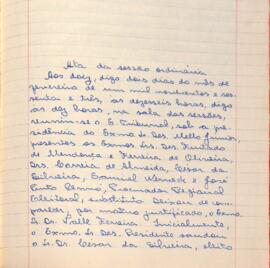 Ata da sessão ordinária
Aos doze, digo dois dias do mês de
fevereiro de um mil novecentos e ses-
senta e três, às dezesseis horas, digo
às dez horas, na sala das sessões,
reuniu-se o E. Tribunal, sob a pre-
sidência do Exmo. Sr. Des. Mello Junior,
presentes os Exmos. Srs. Des. Furtado
de Mendonça e Ferreira de Oliveira,
Drs. Correia de Almeida, Cesar da
Silveira, Samuel Werneck e José
Pinto Renno, Procurador Regional
Eleitoral, substituto. Deixou de com-
parecer, por motivo justificado, o Exmo.
Sr. Dr. Valle Ferreira. Inicialmente,
o Exmo. Sr. Des. Presidente saudou
o Sr. Dr. Cesar da Silveira, eleito